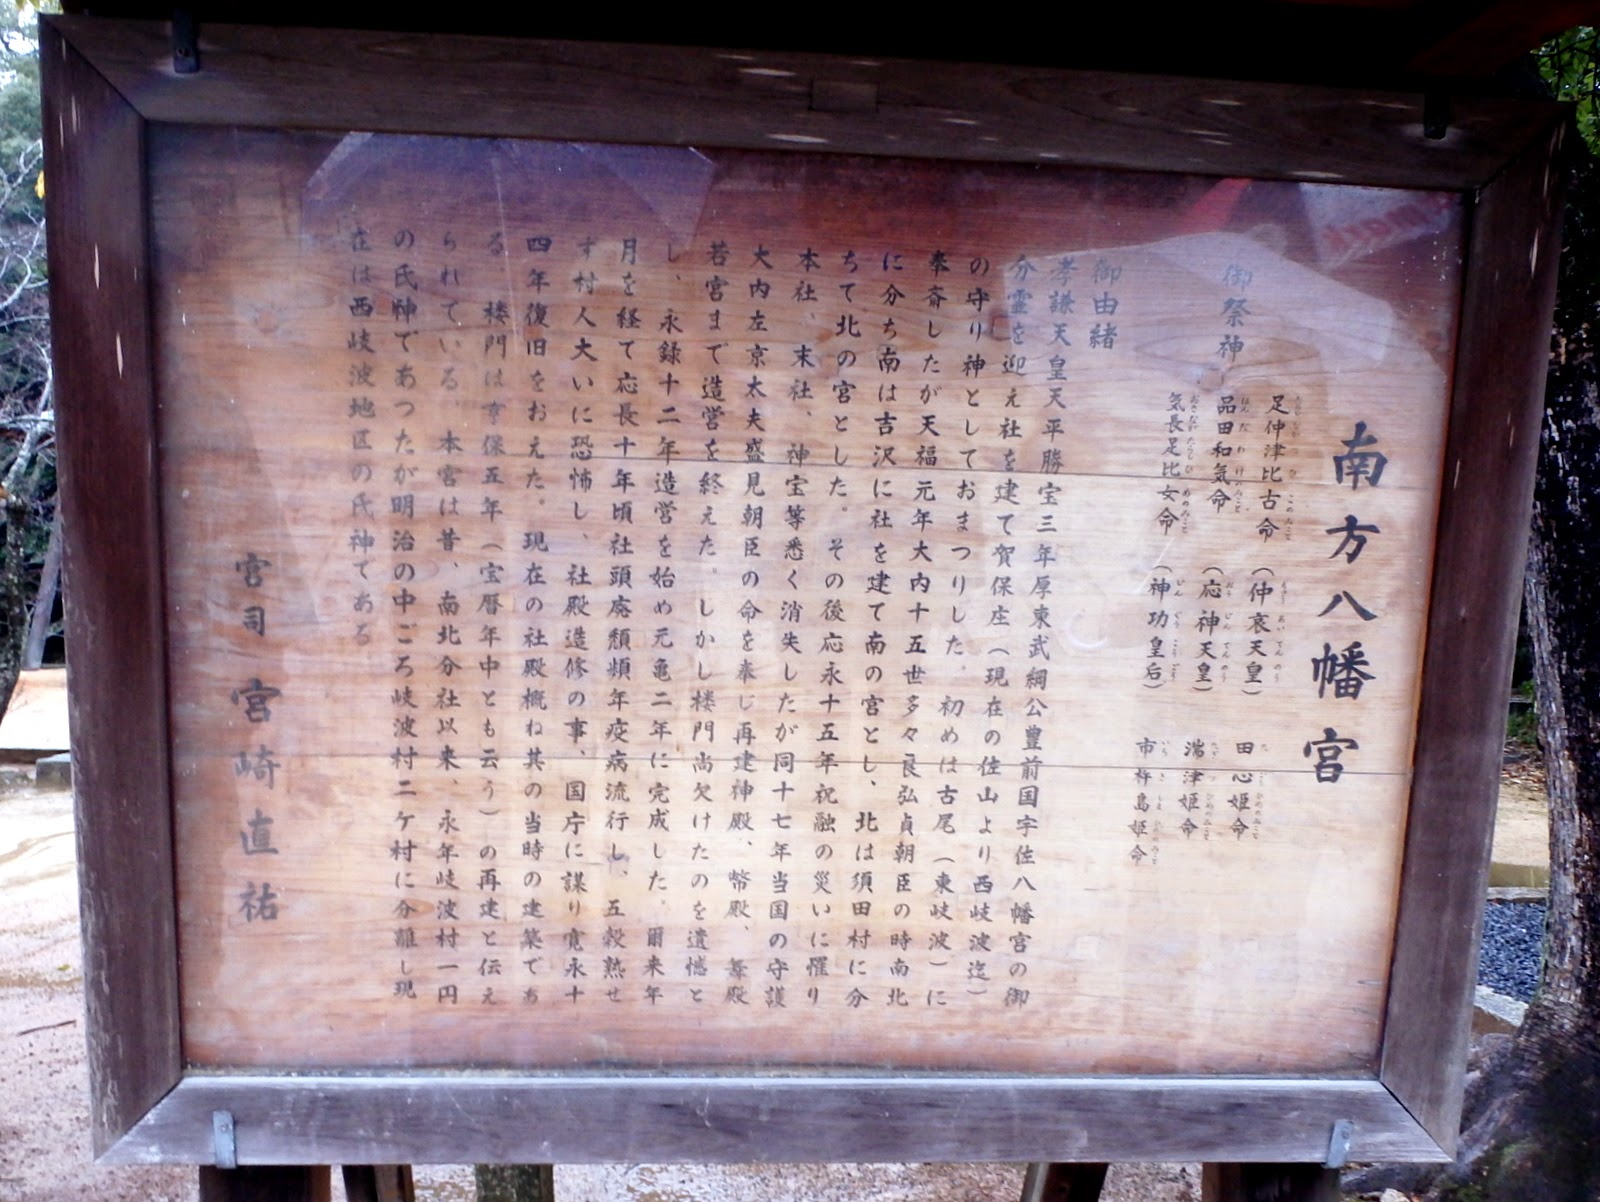 南方八幡宮
御祭神
足仲津比古命（仲哀天皇）　田心姫命
品田和気命（応神天皇）　湍津姫命
気長足比女命（神功皇后）　市杵島姫命
御由緒
孝謙天皇天平勝宝三年厚東武綱公豊前国宇佐八幡宮の御
分霊を迎え社を建て賀保庄（現在の佐山より西岐波迄）
の守り神としておまつりした。初めは古尾（東岐波）に
奉斎したが天福元年大内十五世多々良弘貞朝臣の時南北
に分ち南は吉沢に社を建て南の宮とし、北は須田村に分
ちて北の宮とした。その後応永十五年祝融の災いに罹り
本社、末社、神宝等悉く消失したが同十七年当国の守護
大内左京太夫盛見朝臣の命を奉じ再建神殿、幣殿、舞殿
若宮まで造営を終えた。しかし楼門尚欠けたのを遺憾と
し、永録十二年造営を始め元亀二年に完成した。爾来年
月を経て応長十年頃社頭廃頽頻年疫病流行し、五穀熟せ
ず村人大いに恐怖し、社殿造修の事、国庁に謀り寛永十
四年復旧をおえた。現在の社殿概ね其の当時の建築であ
る。楼門は享保五年（宝暦年中とも云う）の再建と伝え
られている。本宮は昔、南北分社以来、永年岐波村一円
の氏神であつたが明治の中ごろ岐波村二ケ村に分離し現
在は西岐波地区の氏神である
宮司　宮崎直祐